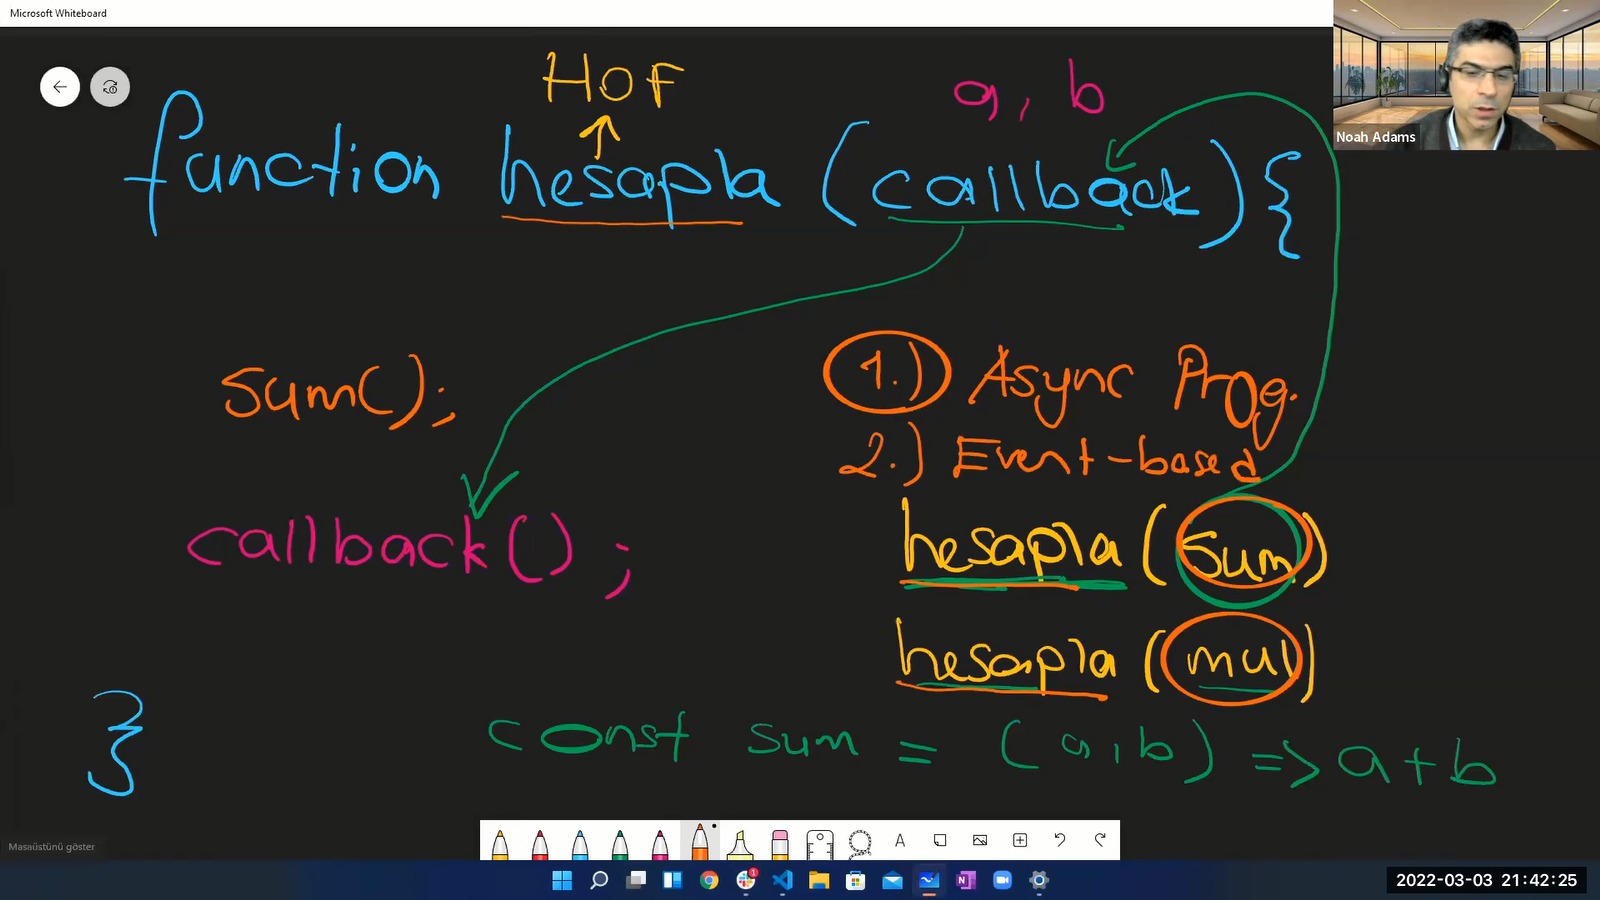 Microsoft Whiteboard
HOF
a, b
Noah Adams
function hesapla (callback) {
sum();
1.) Async Prog.
2.) Event-based
callback();
hesapla (sum)
hesapla (mul)
}
const sum = (a,b) => a+b
Masaüstünü göster
A
1
N
2022-03-03 21:42:25